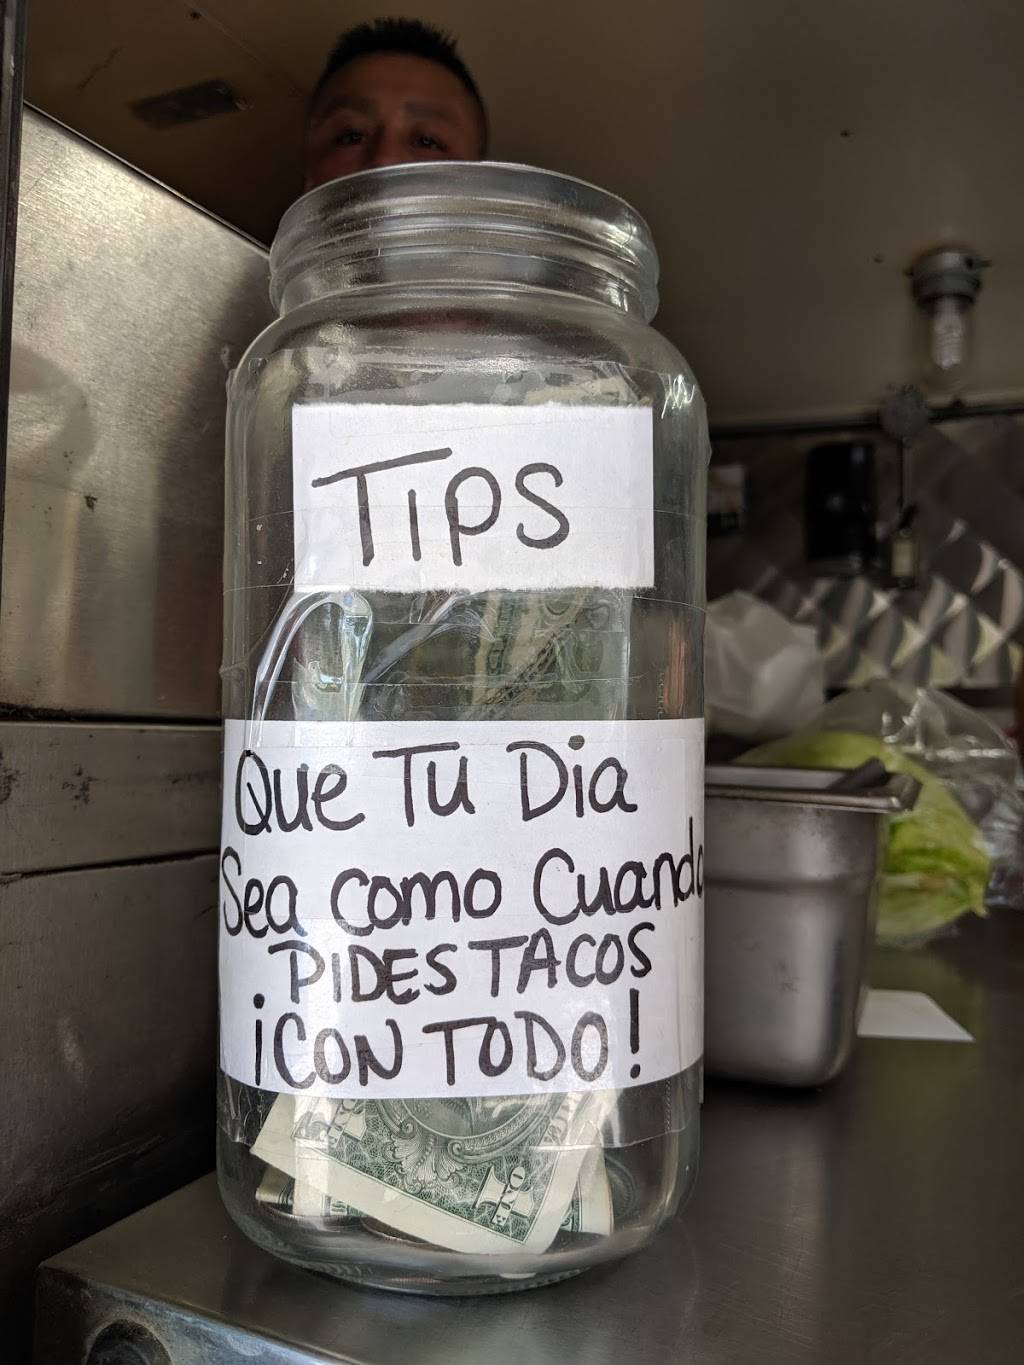 Tips
Que Tu Dia
Sea como Cuando
PIDES TACOS
¡CON TODO!
ONE
1
ONE